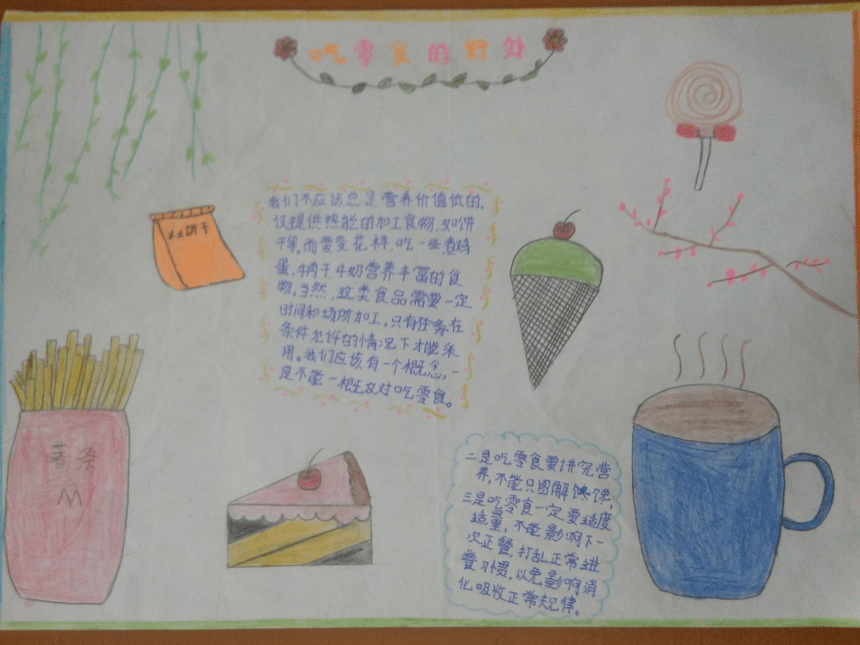 吃零食的好处
我们不应该总是营养价值低的、
仅提供热能的加工食物,如饼
干等。而要变花样,吃一些煮鸡
蛋、牛肉干、牛奶营养丰富的食
物。当然,这类食品需要一定
时间和场所加工,只有在
条件允许的情况下才能采
用。我们应该有一个概念,一
是不能一概反对吃零食。
XX饼干
薯条
M
二是吃零食要讲究营
养,不能只图解馋馋,
三是吃零食一定要适度
适量,不能影响下一
次正餐,打乱正常进
餐习惯,以免影响消
化吸收正常规律。